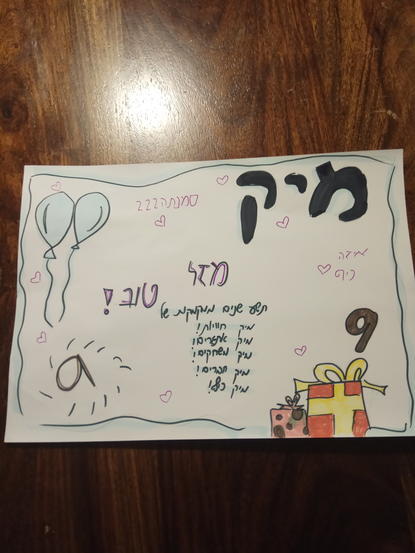 מיק
סמנתה222
מזל
טוב!
איזה
כיף
תשע שנים מתוקות של
מיק חוויות!
מיק אתגרים!
מיק משחקים!
מיק חברים!
מיק כללי!
9
9